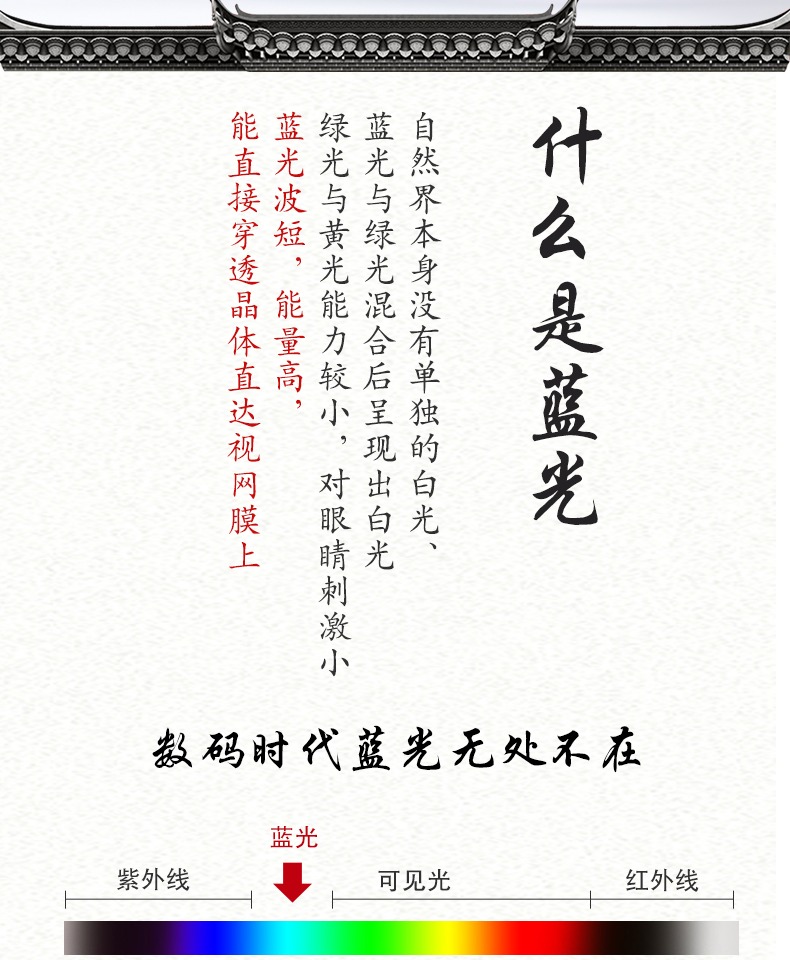 什么是蓝光
自然界本身没有单独的白光、
蓝光与绿光混合后呈现出白光
绿光与黄光能力较小，对眼睛刺激小
蓝光波短，能量高，
能直接穿透晶体直达视网膜上
数码时代蓝光无处不在
蓝光
紫外线
可见光
红外线